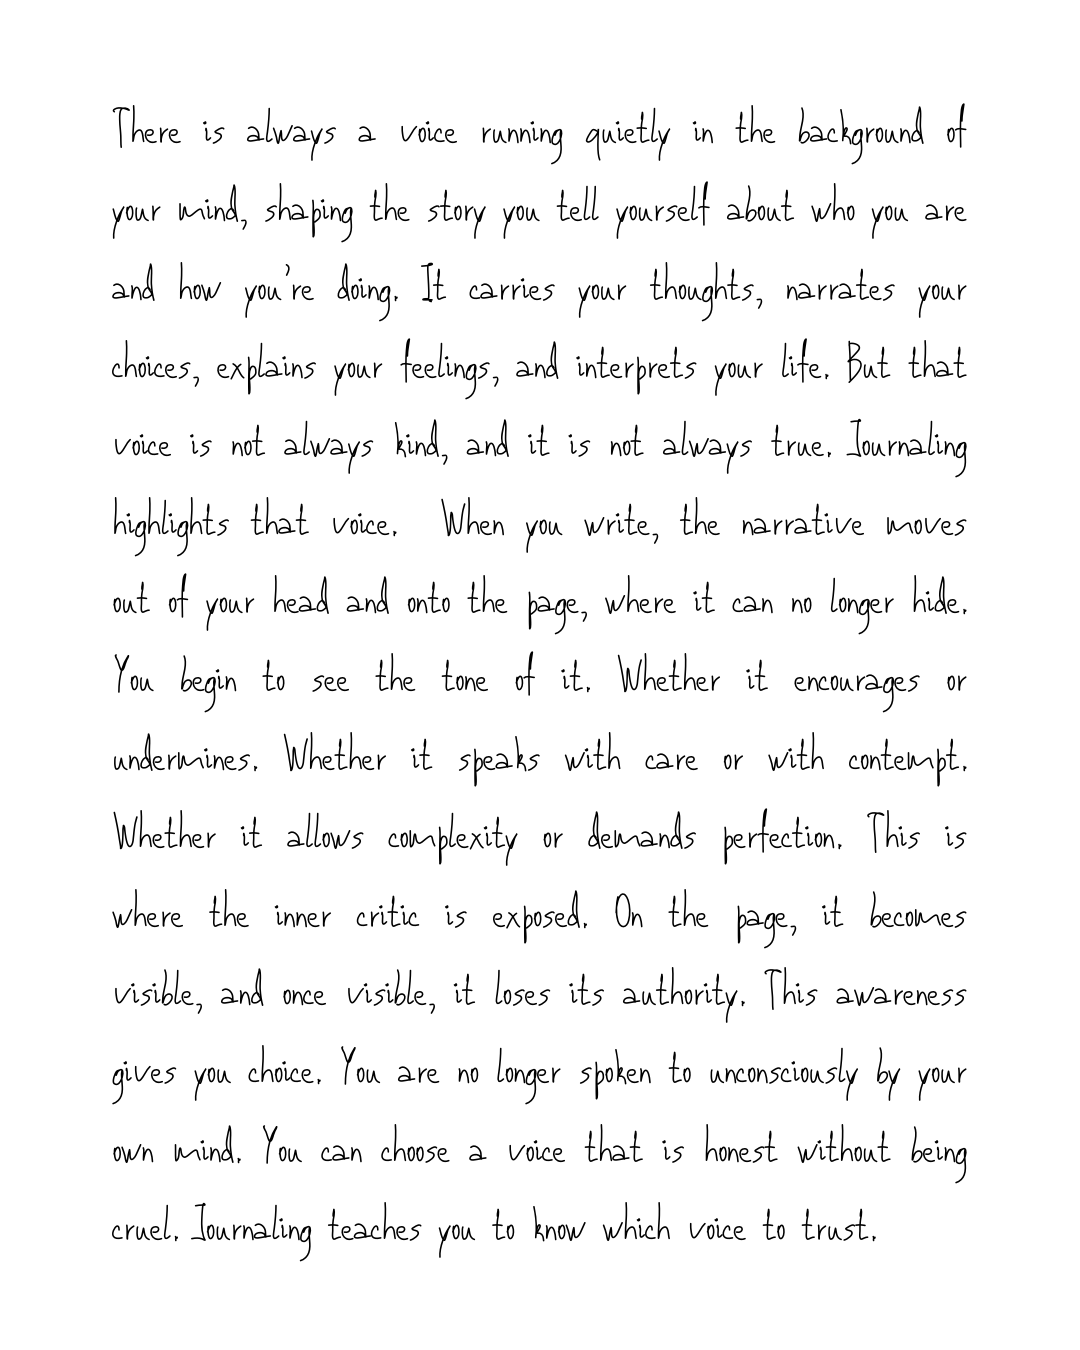 There is always a voice running quietly in the background of
your mind, shaping the story you tell yourself about who you are
and how you're doing. It carries your thoughts, narrates your
choices, explains your feelings, and interprets your life. But that
voice is not always kind, and it is not always true. Journaling
highlights that voice.  When you write, the narrative moves
out of your head and onto the page, where it can no longer hide.
You begin to see the tone of it. Whether it encourages or
undermines. Whether it speaks with care or with contempt.
Whether it allows complexity or demands perfection. This is
where the inner critic is exposed. On the page, it becomes
visible, and once visible, it loses its authority. This awareness
gives you choice. You are no longer spoken to unconsciously by your
own mind. You can choose a voice that is honest without being
cruel. Journaling teaches you to know which voice to trust.